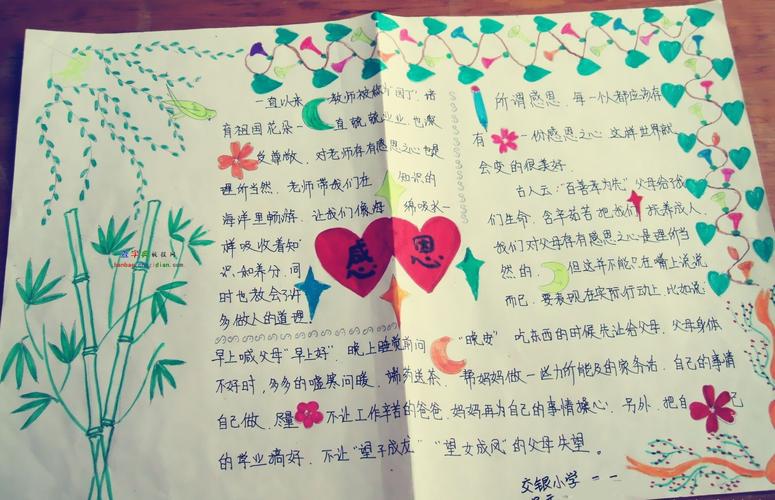 一直以来 教师被燎"园丁"培
育祖国花朵一直兢兢业业,也深
受尊敬,对老师存有感恩之心也是
理所当然,老师带我们在 知识的
海洋里畅游,让我们像海绵吸水一
样吸收着知
识和养分,同
时也教会了许
多做人的道理。
感恩
所谓感恩,每一个人都应该存
有一份感恩之心,这样世界就
会变的很美好.
古人云:"百善孝为先"父母给了我
们生命,含辛茹苦把我们抚养成人,
我们对父母存有感恩之心是理价当
然的,但这并不能只在嘴上说说
而已,要表现在实际行动上,比如说:
早上喊父母"早上好",晚上睡觉前问"晚安"吃东西的时候先让给父母,父母身体
不好时,多多的嘘寒问暖,端药送茶,帮妈妈做一些力所能及的家务活,自己的事情
自己做,尽量不让工作辛苦的爸爸,妈妈再为自己的事情操心,另外,把自己
的学业搞好,不让"望子成龙""望女成凤"的父母失望。
交银小学 一一